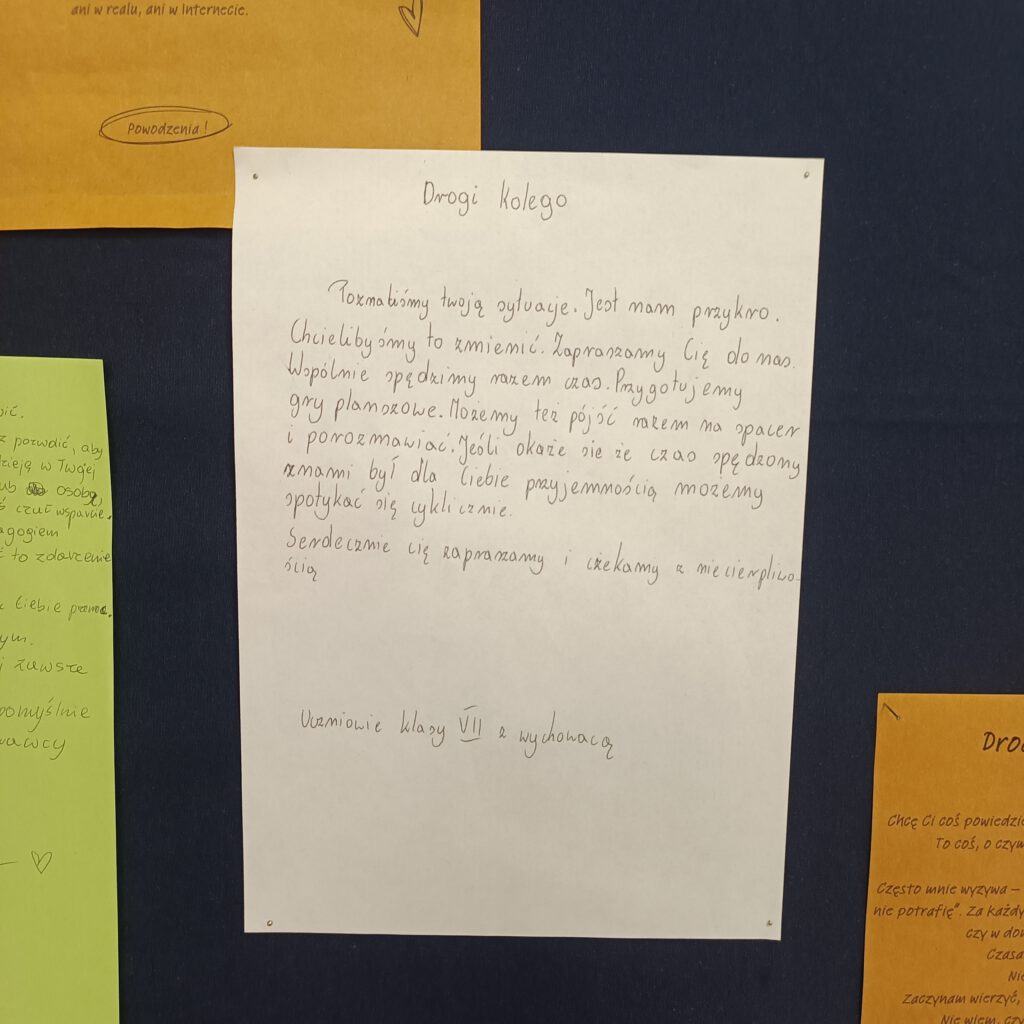 ani w realu, ani w Internecie.
Powodzenia!
Drogi kolego
Poznaliśmy twoją sytuacje. Jest nam przykro.
Chcielibyśmy to zmienić. Zapraszamy Cię do nas.
Wspólnie spędzimy razem czas. Przygotujemy
gry planszowe. Możemy też pójść razem na spacer
i porozmawiać. Jeśli okaże sie że czas spędzony
znami był dla Ciebie przyjemnością możemy
spotykać się cyklicznie.
Serdecznie cię zapraszamy i czekamy z niecierpliwo-
ścią
Uczniowie klasy VII z wychowacą
bić.
pozwolić, aby
dzieją w Twojej
ub osobę,
ś czuł wsparcie.
agogiem
to zdarzenie
Ciebie pomoc.
ym.
j zawsze
pomyślnie
wawcy
Dro
Chcę Ci coś powiedzie
To coś, o czym
Często mnie wyzywa –
nie potrafię". Za każdy
czy w dom
Czasa
Nie
Zaczynam wierzyć,
Nie wiem, czy